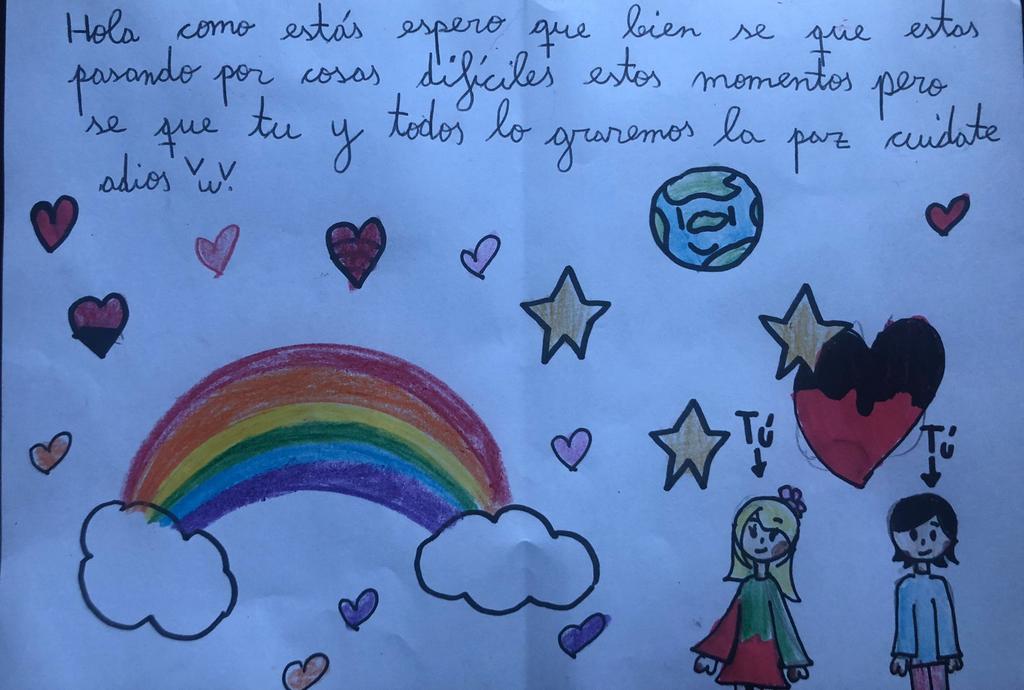 Hola como estás espero que bien se que estas
pasando por cosas difíciles estos momentos pero
se que tu y todos lo graremos la paz cuidate
adios VwV.
Tú
Tú